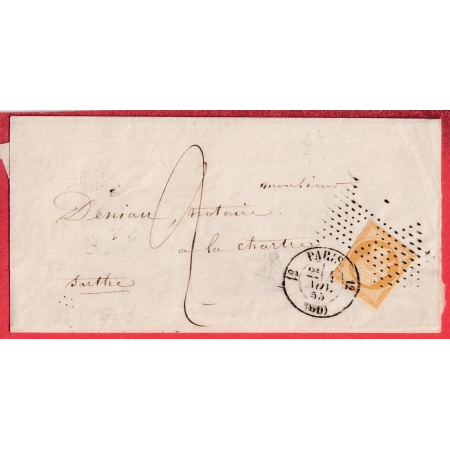 2
monsieur
Deniau notaire
a la chartre
sarthe
PARIS
12 12
NOV.
55
(60)